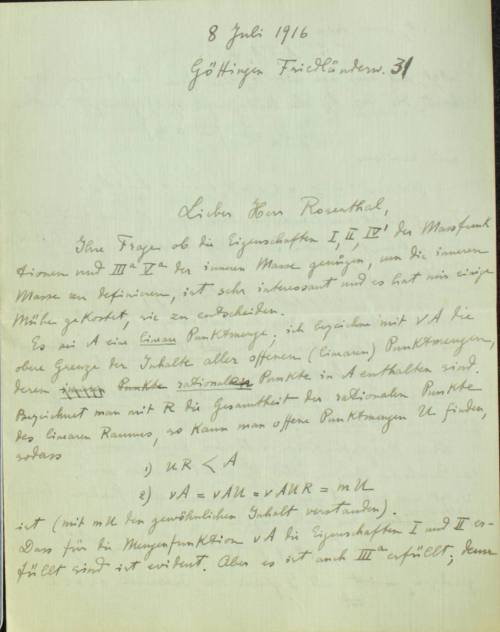 8 Juli 1916
Göttingen Friedländerw. 31
Lieber Herr Rosenthal,
Ihre Frage ob die Eigenschaften I, II, IV' der Massfunk
tionen und IIIª Vª der inneren Masse genügen, um die inneren
Masse zu definieren, ist sehr interessant und es hat mir einige
Mühe gekostet, sie zu entscheiden.
Es sei A eine lineare Punktmenge; ich bezeichne mit νA die
obere Grenze der Inhalte aller offenen (linearen) Punktmengen,
deren Punkte rationalen Punkte in A enthalten sind.
Bezeichnet man mit R die Gesamtheit der rationalen Punkte
des linearen Raumes, so kann man offene Punktmengen U finden,
sodass
1) UR < A
2) νA = νAU = νAUR = mU
ist (mit mU den gewöhnlichen Inhalt verstanden).
Dass für die Mengenfunktion νA die Eigenschaften I und II er-
füllt sind ist evident. Aber es ist auch IIIª erfüllt; denn